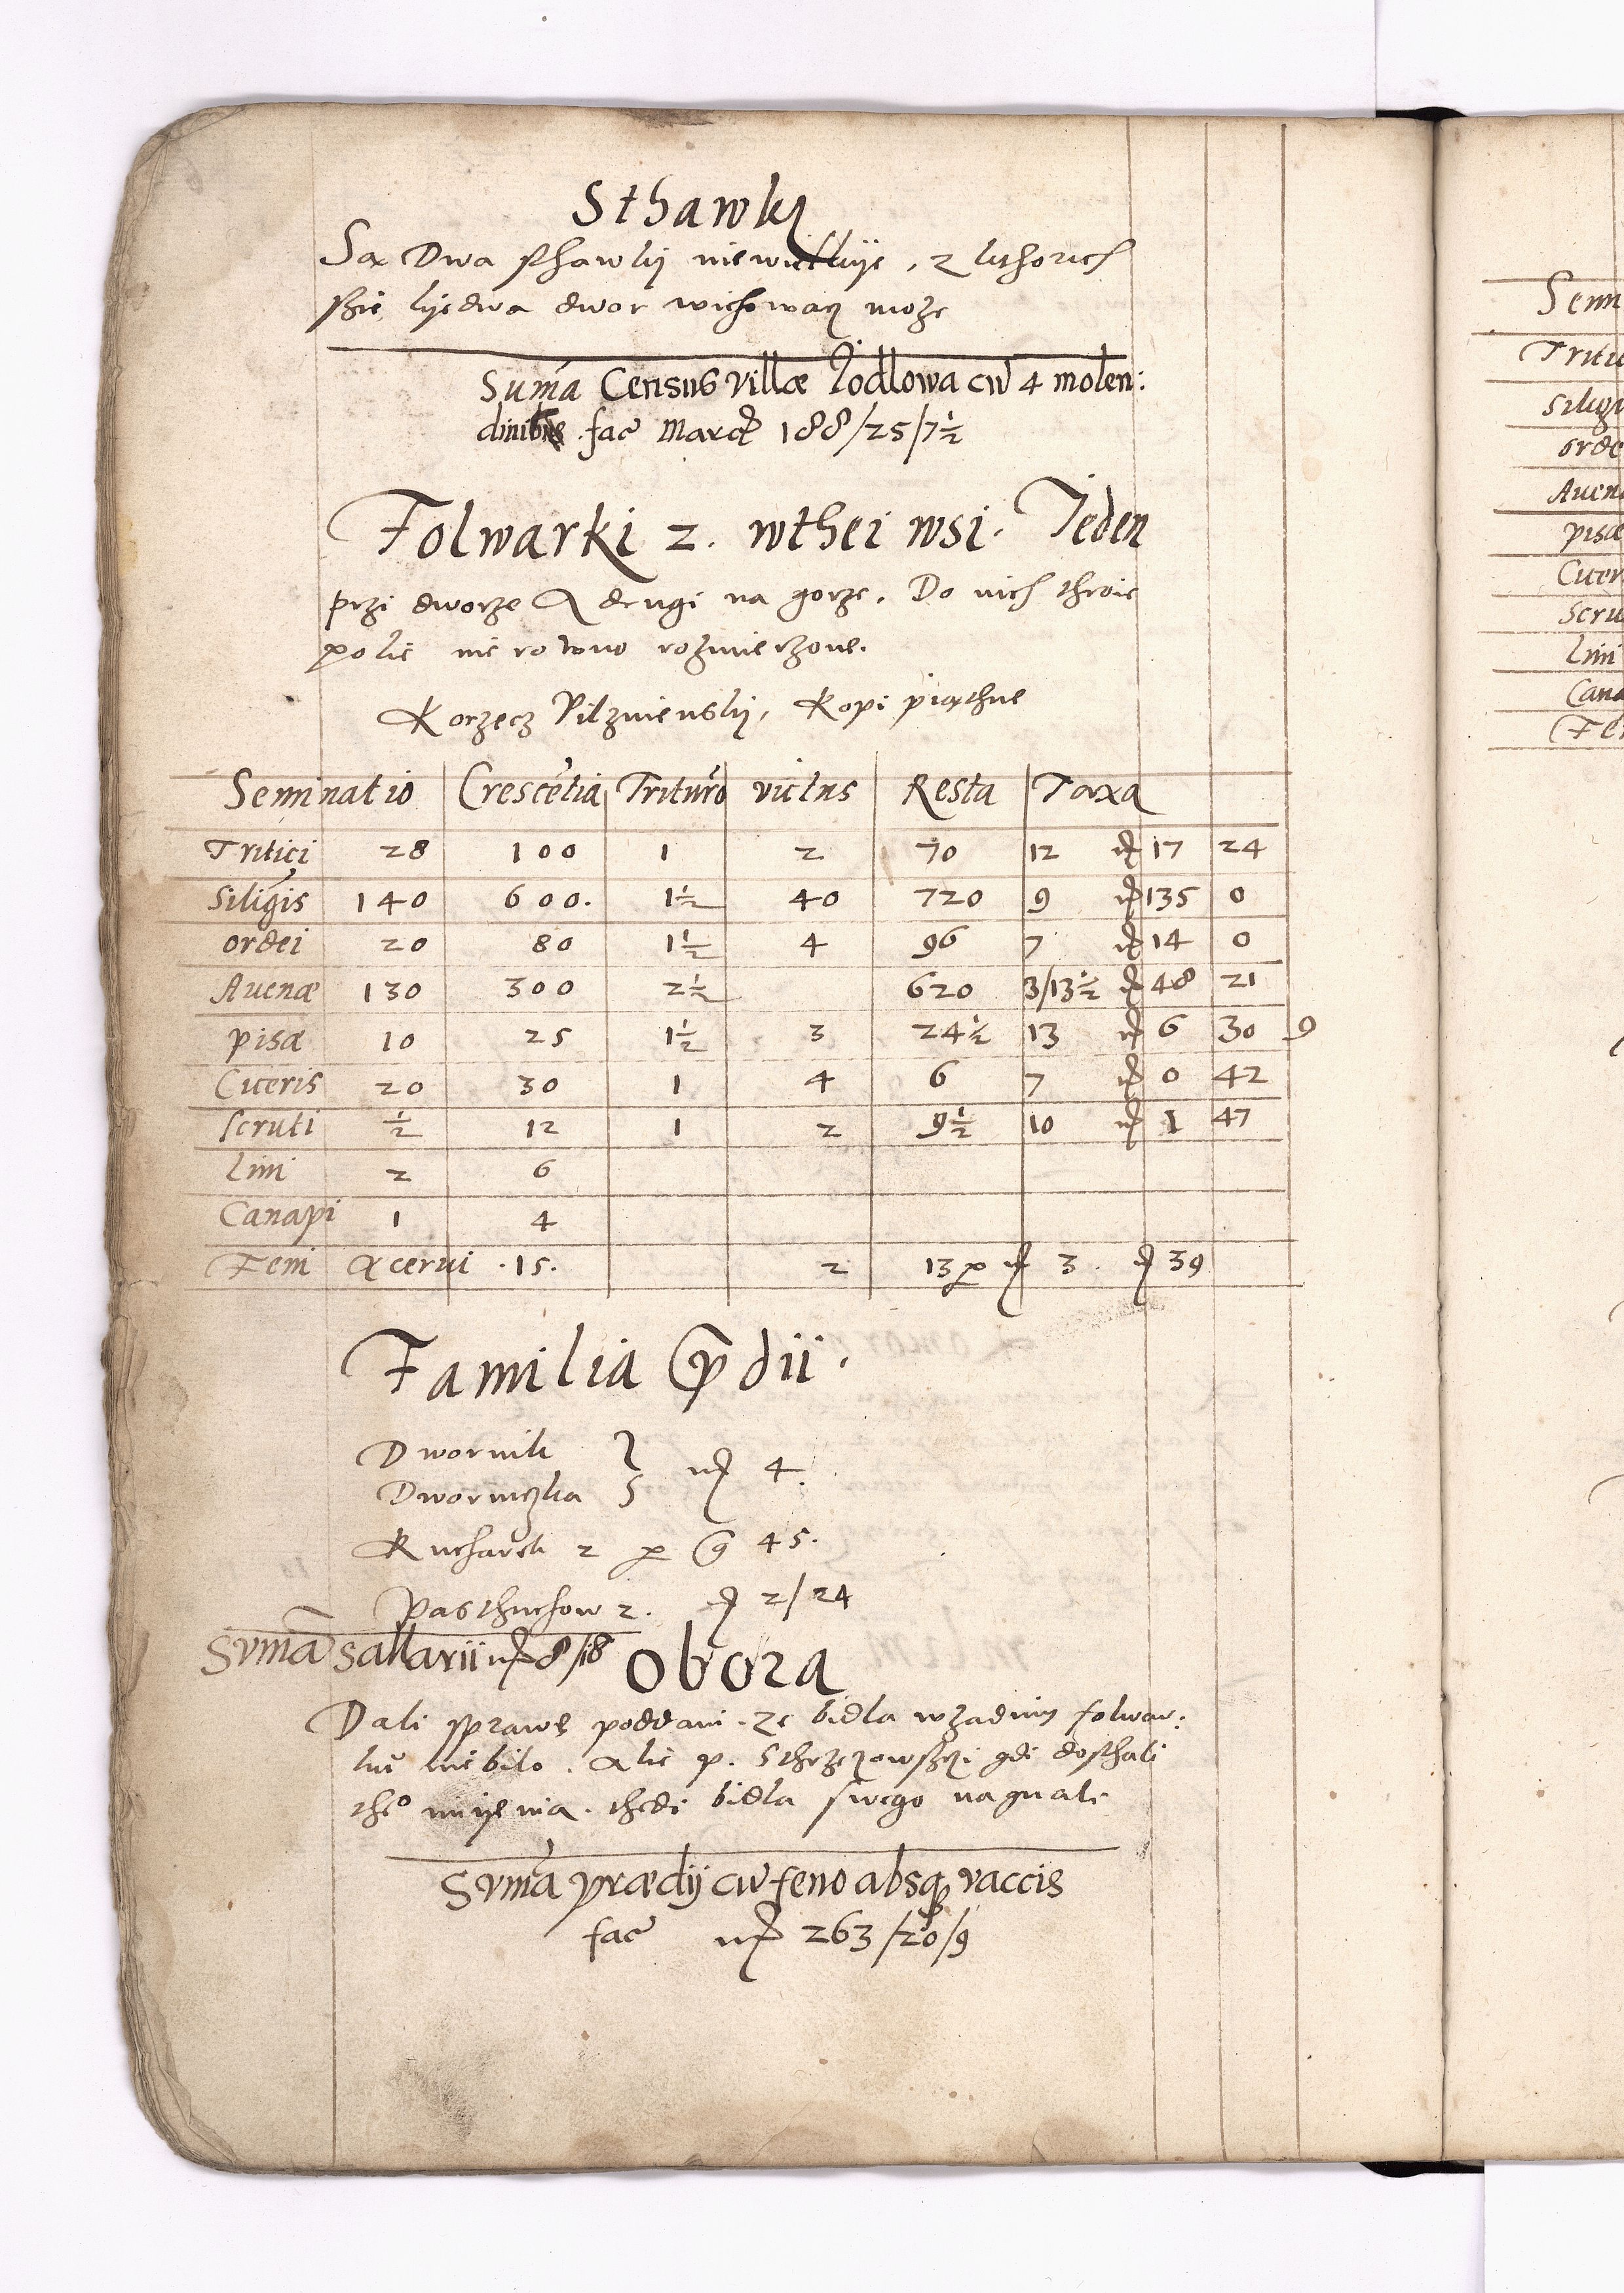 Sthawky
Są Dwa sthawky niewielkije, z kthorich
szie lyedwa dwor wichowacz może
Suma Census villæ Jodlowa cu 4 molen:
dinibus fac March 188/25/7½
Folwarki 2. wthei wsi. Jeden
przi dworze A drugi na gorze. Do nich throie
polie nierowno rozmierzone.
Korzecz Pilznienski, Kopi piąthne
Seminatio Crescetia Trituro victus Resta Taxa
Tritici 28 100 1 2 70 12 mr 17 24
Siliginis 140 600. 1½ 40 720 9 mr 135 0
ordei 20 80 1½ 4 96 7 mr 14 0
Auenæ 130 300 2½ 620 3/13½ mr 48 21
pisæ 10 25 1½ 3 24½ 13 mr 6 30 9
Ciceris 20 30 1 4 6 7 mr 0 42
scruti ½ 12 1 2 9½ 10 mr 1 47
Lini 2 6
Canapi 1 4
Feni acerui .15. 2 13 p mr 3. mr 39
Familia Pdii.
Dwornik
Dworniczka mr 4.
Kucharek 2 p g 45.
Pasthuchow 2. mr 2/24
Suma Sallarii mr 8/18
Obora
Dali sprawę poddani. ze bidla wżadnim folwar:
ku nie bilo. Alie p. gdi dosthali
theo imyenia. thedi bidla swego nagnali
Suma prædij cu feno absq vaccis
fac mr 263/20/9
Semi
Tritic
Siligi
orde
Auen
pisæ
Cicer
Scru
Lini
Cana
Fe